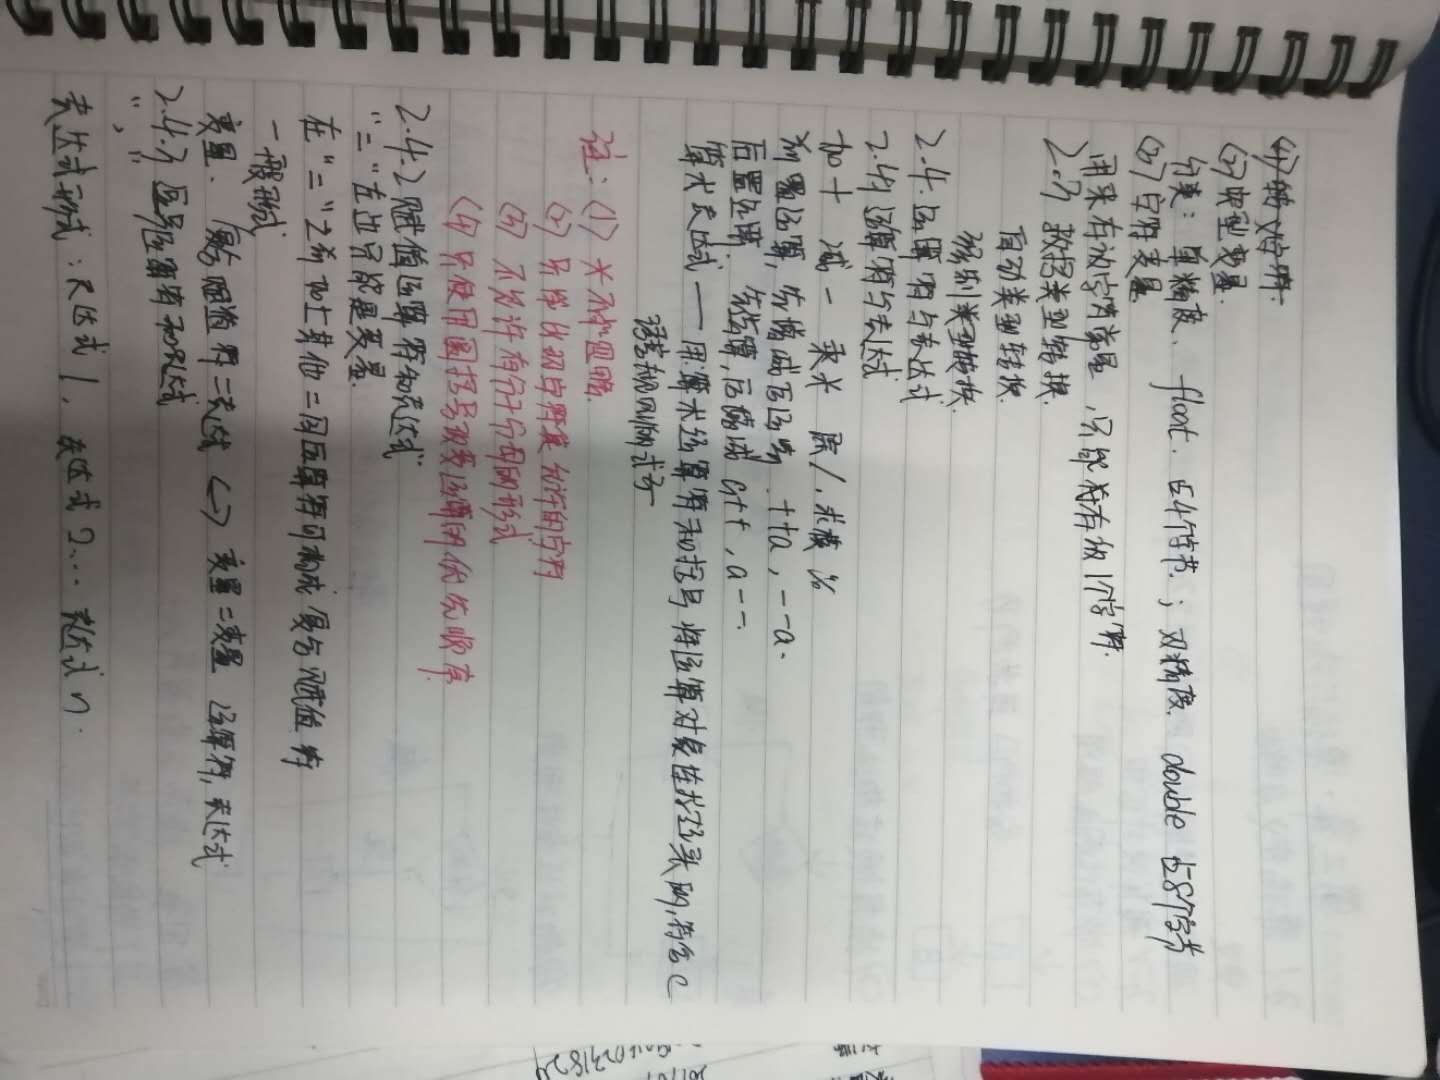 (4) 转义字符.
(2) 实型变量.
分类: 单精度、float. 占4个字节; 双精度 double 占8个字节
(3) 字符变量
用来存放字符常量, 只能存放1个字符.
2.3 数据类型转换.
自动类型转换.
强制类型转换.
2.4. 运算符与表达式
2.4.1 运算符与表达式
加+ 减- 乘* 除/. 求模%
前置运算, 先增减后运算. ++a, --a.
后置运算. 先运算, 后增减 a++, a--.
算术表达式——用算术运算符和括号将运算对象连接起来的, 符合C
语言规则的式子
注: (1) *不能省略.
(2) 只能出现字符集允许的字符
(3) 不允许有分子分母的形式
(4) 只使用圆括号改变运算的优先顺序.
2.4.2 赋值运算符和表达式
"="左边只能是变量.
在"="之前加上其他二目运算符可构成复合赋值符
一般形式
变量. 复合赋值符=表达式 <=> 变量=变量 运算符, 表达式
2.4.3 逗号运算符和表达式
","
表达式形式: 表达式1, 表达式2... 表达式n.